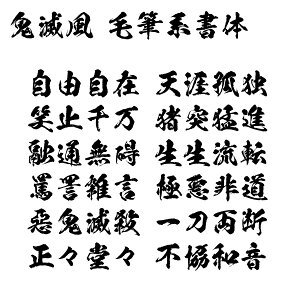 鬼滅風 毛筆系書体
自由自在 天涯孤独
笑止千万 猪突猛進
融通無碍 生生流転
罵詈雑言 極悪非道
惡鬼滅殺 一刀両断
正々堂々 不協和音